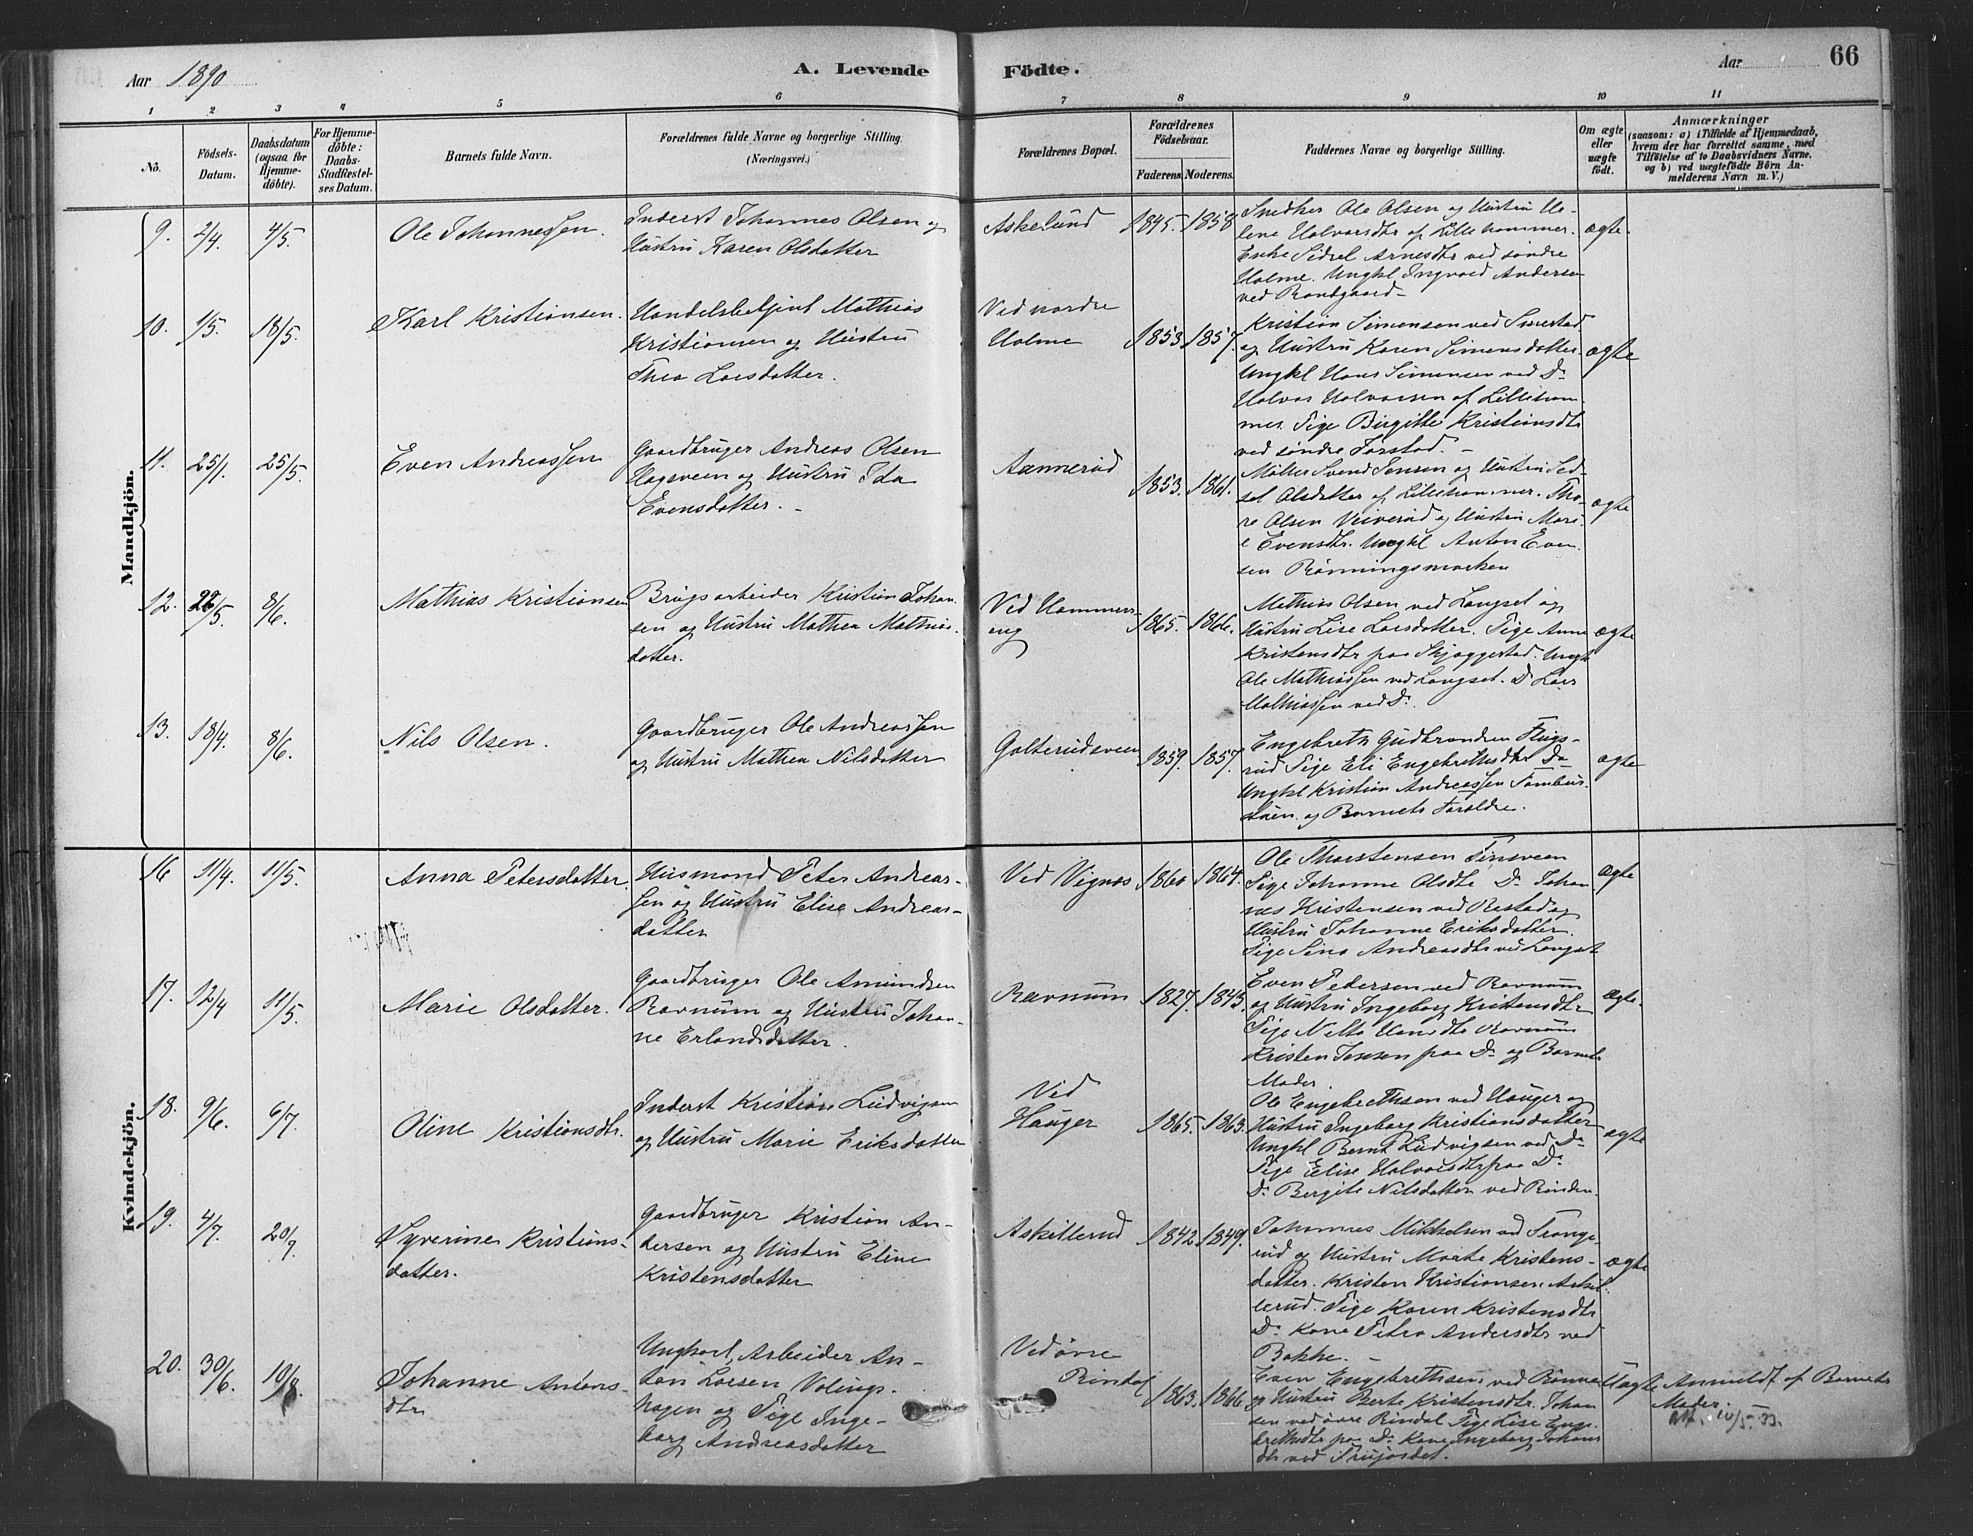 Aar 1890
A. Levende Födte.
Aar
66
1 2 3 4 5 6 7 8 9 10 11
No.
Födsels-
Datum.
Daabsdatum
(ogsaa for
Hjemme-
döbte).
For Hjemme-
döbte:
Daabs-
Stadfæstel-
ses Datum.
Barnets fulde Navn.
Forældrenes fulde Navne og borgerlige Stilling.
(Næringsvei.)
Forældrenes Bopæl.
Forældrenes
Födselsaar.
Faderens Moderens.
Faddernes Navne og borgerlige Stilling.
Om ægte
eller
uægte
födt.
Anmærkninger
(saasom: a) i Tilfælde af Hjemmedaab,
hvem der har forrettet samme, med
Tilföielse af to Daabsvidners Navne,
og b) ved uægtefödte Börn An-
melderens Navn m. V.)
Mandkjön.
9. 2/4. 4/5. Ole Johannessen.
Inderst Johannes Olsen og
Hustru Karen Olsdatter
Askelund 1845. 1858
Snedker Ole Olsen og Hustru He-
lene Halvorsdtr af Lillehammer.
Enke Sidsel Arnesdtr ved söndre
Holme. Ungkl Ingvald Andersen
ved Rondgaard -
ægte.
10. 1/5. 18/5. Karl Kristiansen.
Handelsbetjent Mathias
Kristiansen og Hustru
Thea Larsdatter.
Ved nordre
Holme 1853 1857.
Kristian Simensen ved Smestad
og Hustru Karen Simensdatter.
Ungkl Hans Simensen ved Do
Halvor Halvorsen af Lilleham-
mer. Pige Birgitte Kristiansdtr
ved söndre Forstad. -
ægte
11. 25/1. 25/5. Even Andreassen
Gaardbruger Andreas Olsen
Hagsveen og Hustru Ida
Evensdatter. -
Aannerud 1853. 1861.
Möller Svend Jensen og Hustru Sid-
sel Olsdatter af Lillehammer. Tho-
re Olsen Veiverud og Hustru Mari-
e Evensdtr. Ungkl Anton Even-
sen Rönningsmarken
ægte
12. 22/5. 8/6. Mathias Kristiansen
Brugsarbeider Kristian Johan-
sen og Hustru Mathea Mathias-
datter.
Ved Hammers-
eng 1865. 1866.
Mathias Olsen ved Langset og
Hustru Lise Larsdatter. Pige Anne
Kristensdtr paa Skjæggestad. Ungk
Ole Mathiassen ved Langset. Do Lars
Mathiassen ved Do.
ægte
13. 18/4. 8/6. Nils Olsen.
Gaardbruger Ole Andreassen
og Hustru Mathea Nilsdatter
Golterudsveen 1859. 1857.
Engebreth Gudbrandsen Flugs-
rud Pige Eli Engebrethsdtr Do
Ungkl Kristian Andreassen
og Barnets Forældre.
ægte
Kvindekjön.
16 11/4. 11/5. Anna Petersdatter.
Husmand Peter Andreas-
sen og Hustru Elise Andreas-
datter
Ved Vignæs 1860 1864.
Ole Thorstensen Finsveen
Pige Johanne Olsdtr Do Johan-
nes Kristensen ved Rostad og
Hustru Johanne Eriksdatter.
Pige Sina Andreasdtr ved Langset
ægte
17. 12/4 11/5. Marie Olsdatter.
Gaardbruger Ole Amundsen
Ravnum og Hustru Johan-
ne Erlandsdatter.
Ravnum 1827. 1843.
Even Pedersen ved Ravnum
og Hustru Ingeborg Kristensdtr
Pige Nilla Hansdtr Ravnum
Kristen Jensen paa Do og Barnets
Moder.
ægte.
18. 9/6. 6/7. Oline Kristiansdtr.
Inderst Kristian Ludvigsen
og Hustru Marie Eriksdatter
Ved
Hauger 1865. 1863.
Ole Engebrethsen ved Hauger og
Hustru Ingeborg Kristiansdatter
Ungkl Bernt Ludvigsen ved Do
Pige Elise Halvorsdtr paa Do
Do Bergite Nilsdatter ved Rinden.
ægte
19. 4/7. 20/7. Syverine Kristians-
datter.
Gaardbruger Kristian An-
dersen og Hustru Eline
Kristensdatter
Askillerud 1842. 1849.
Johannes Mikkelsen ved Trange-
rud og Hustru Marte Kristens-
datter. Kristen Kristiansen Askil-
lerud. Pige Karen Kristensdtr
Do. Kone Petra Andersdtr ved
Bakke. -
ægte
20. 30/6. 10/8. Johanne Antons-
dtr
Ungkarl, Arbeider An-
ton Larsen Volings-
hagen og Pige Inge-
borg Andreasdatter
Ved övre
Rindal 1863. 1866
Even Engebrethsen ved Rönne
og Hustru Berte Kristensdtr. Johan-
sen ved övre Rindal Pige Lise Enge-
brethsdtr paa Do Kone Ingeborg Johans
dtr ved
Uægte
Anmeldt af Barnets
Moder.
10/5-33.